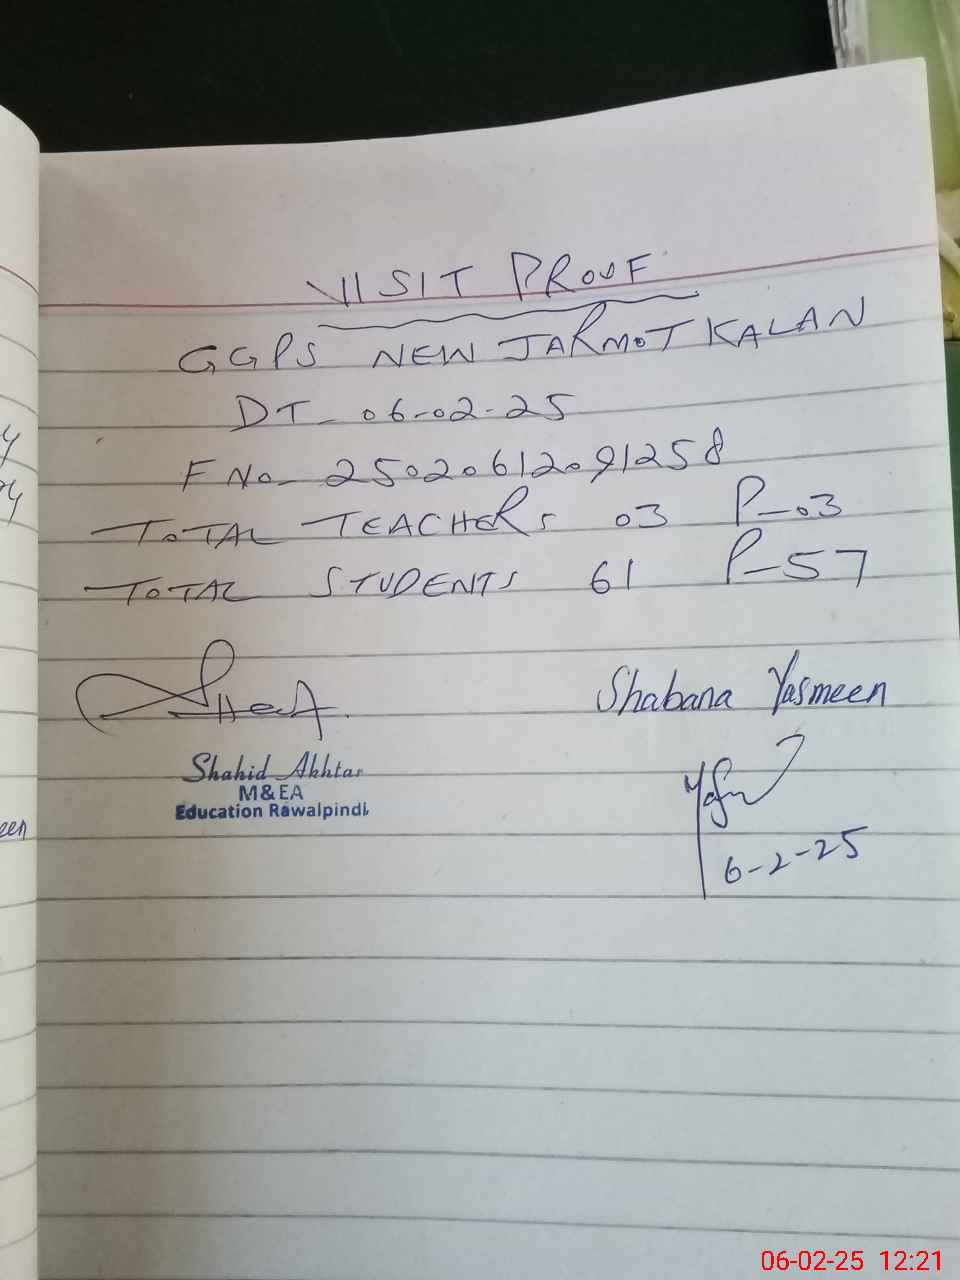 VISIT PROOF
GGPS NEW JARMOT KALAN
DT- 06-02-25
F No- 25020612091258
TOTAL TEACHERS 03 P-03
TOTAL STUDENTS 61 P-57
Shabana Yasmeen
Shahid Akhtar
M&EA
Education Rawalpindi
6-2-25
een
06-02-25 12:21